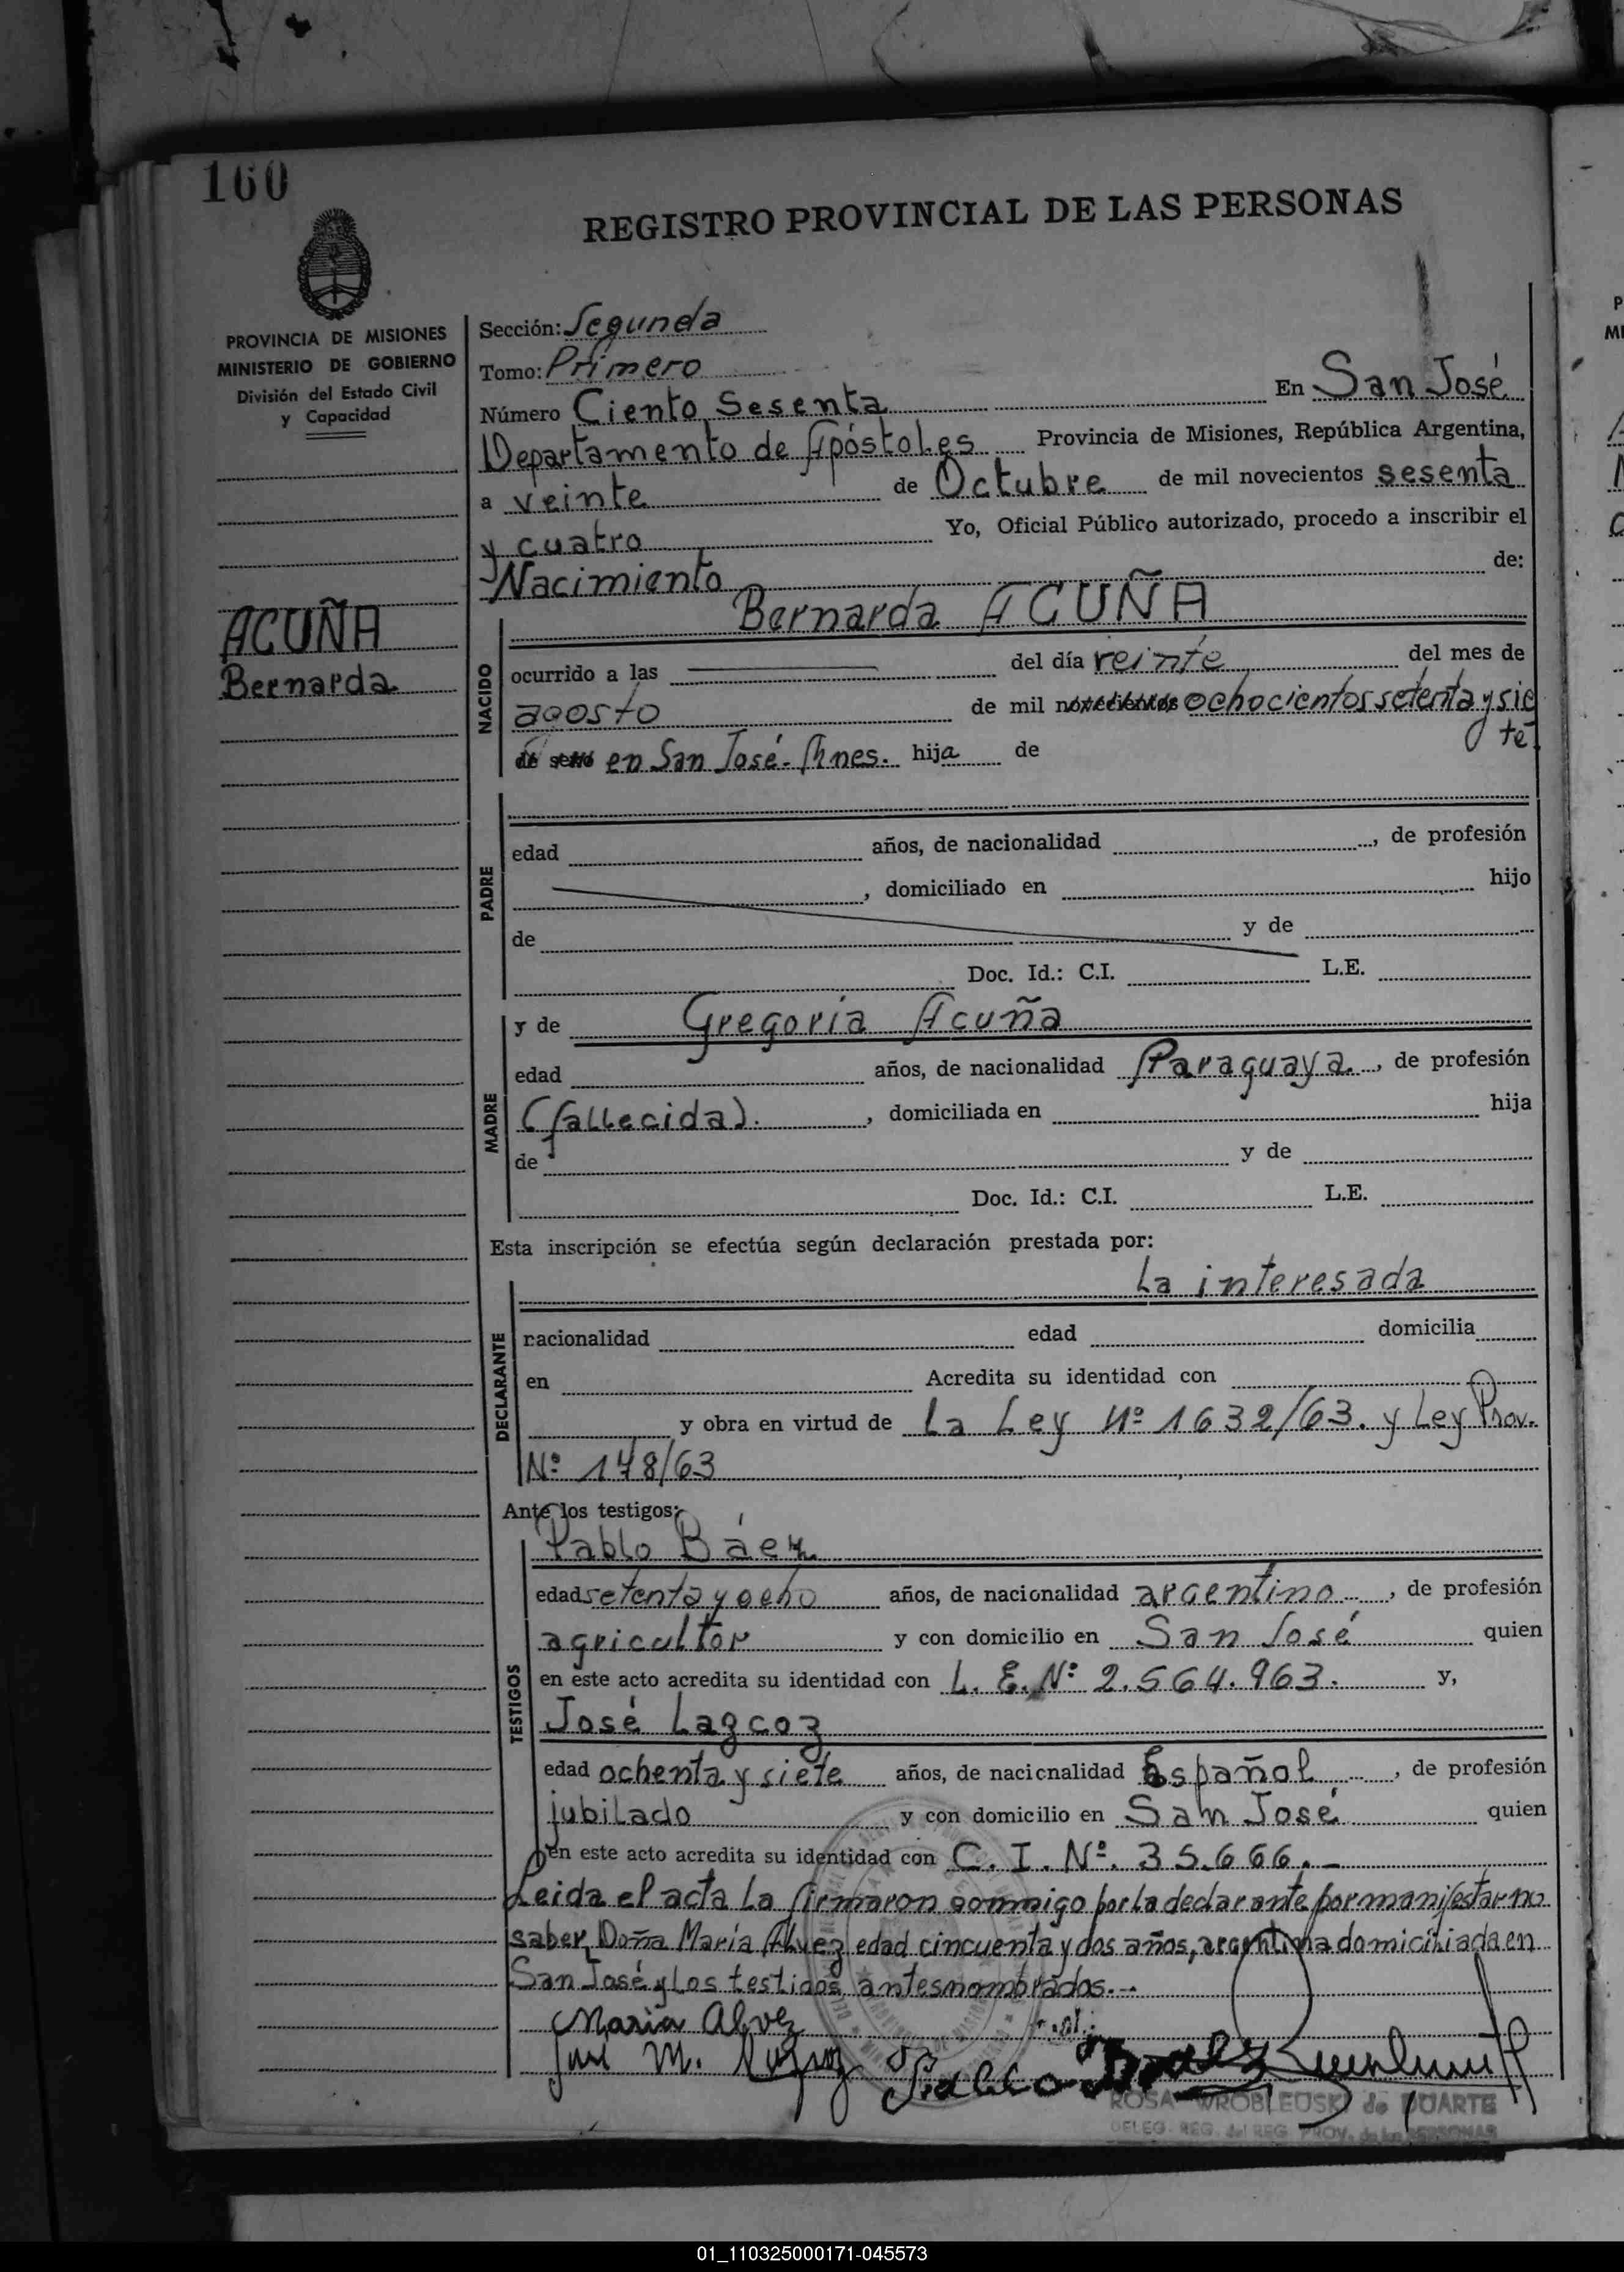 160
REGISTRO PROVINCIAL DE LAS PERSONAS
PROVINCIA DE MISIONES
MINISTERIO DE GOBIERNO
División del Estado Civil
y Capacidad
ACUÑA
Bernarda
Sección: Segunda
Tomo: Primero
Número Ciento Sesenta En San José
Departamento de Apóstoles Provincia de Misiones, República Argentina,
a veinte de Octubre de mil novecientos sesenta
y cuatro Yo, Oficial Público autorizado, procedo a inscribir el
Nacimiento de:
Bernarda ACUÑA
NACIDO
ocurrido a las del día veinte del mes de
agosto de mil novecientos ochocientos setenta y sie
te
de sexo en San José. Mnes. hija de
PADRE
edad años, de nacionalidad , de profesión
, domiciliado en hijo
de y de
Doc. Id.: C.I. L.E.
MADRE
y de Gregoria Acuña
edad años, de nacionalidad Paraguaya. , de profesión
(fallecida). , domiciliada en hija
de y de
Doc. Id.: C.I. L.E.
Esta inscripción se efectúa según declaración prestada por:
La interesada
DECLARANTE
nacionalidad edad domicilia
en Acredita su identidad con
y obra en virtud de la Ley Nº 1632/63. y Ley Prov.
Nº 148/63
Ante los testigos:
TESTIGOS
Pablo Báez
edad setenta y ocho años, de nacionalidad argentino , de profesión
agricultor y con domicilio en San José quien
en este acto acredita su identidad con L. E. Nº 2.564.963. y,
José Lagcoz
edad ochenta y siete años, de nacionalidad Español , de profesión
jubilado y con domicilio en San José quien
en este acto acredita su identidad con C. I. Nº. 35.666.-
Leida el acta la firmaron conmigo por la declarante por manifestar no
saber, Doña María Alvez edad cincuenta y dos años, argentina domiciliada en
San José y los testigos antes nombrados.--
Maria Alvez
José M. Pablo Baez
ROSA WROBLEUSKI de DUARTE
DELEG. REG. del REG. PROV. de las PERSONAS
01_110325000171-045573